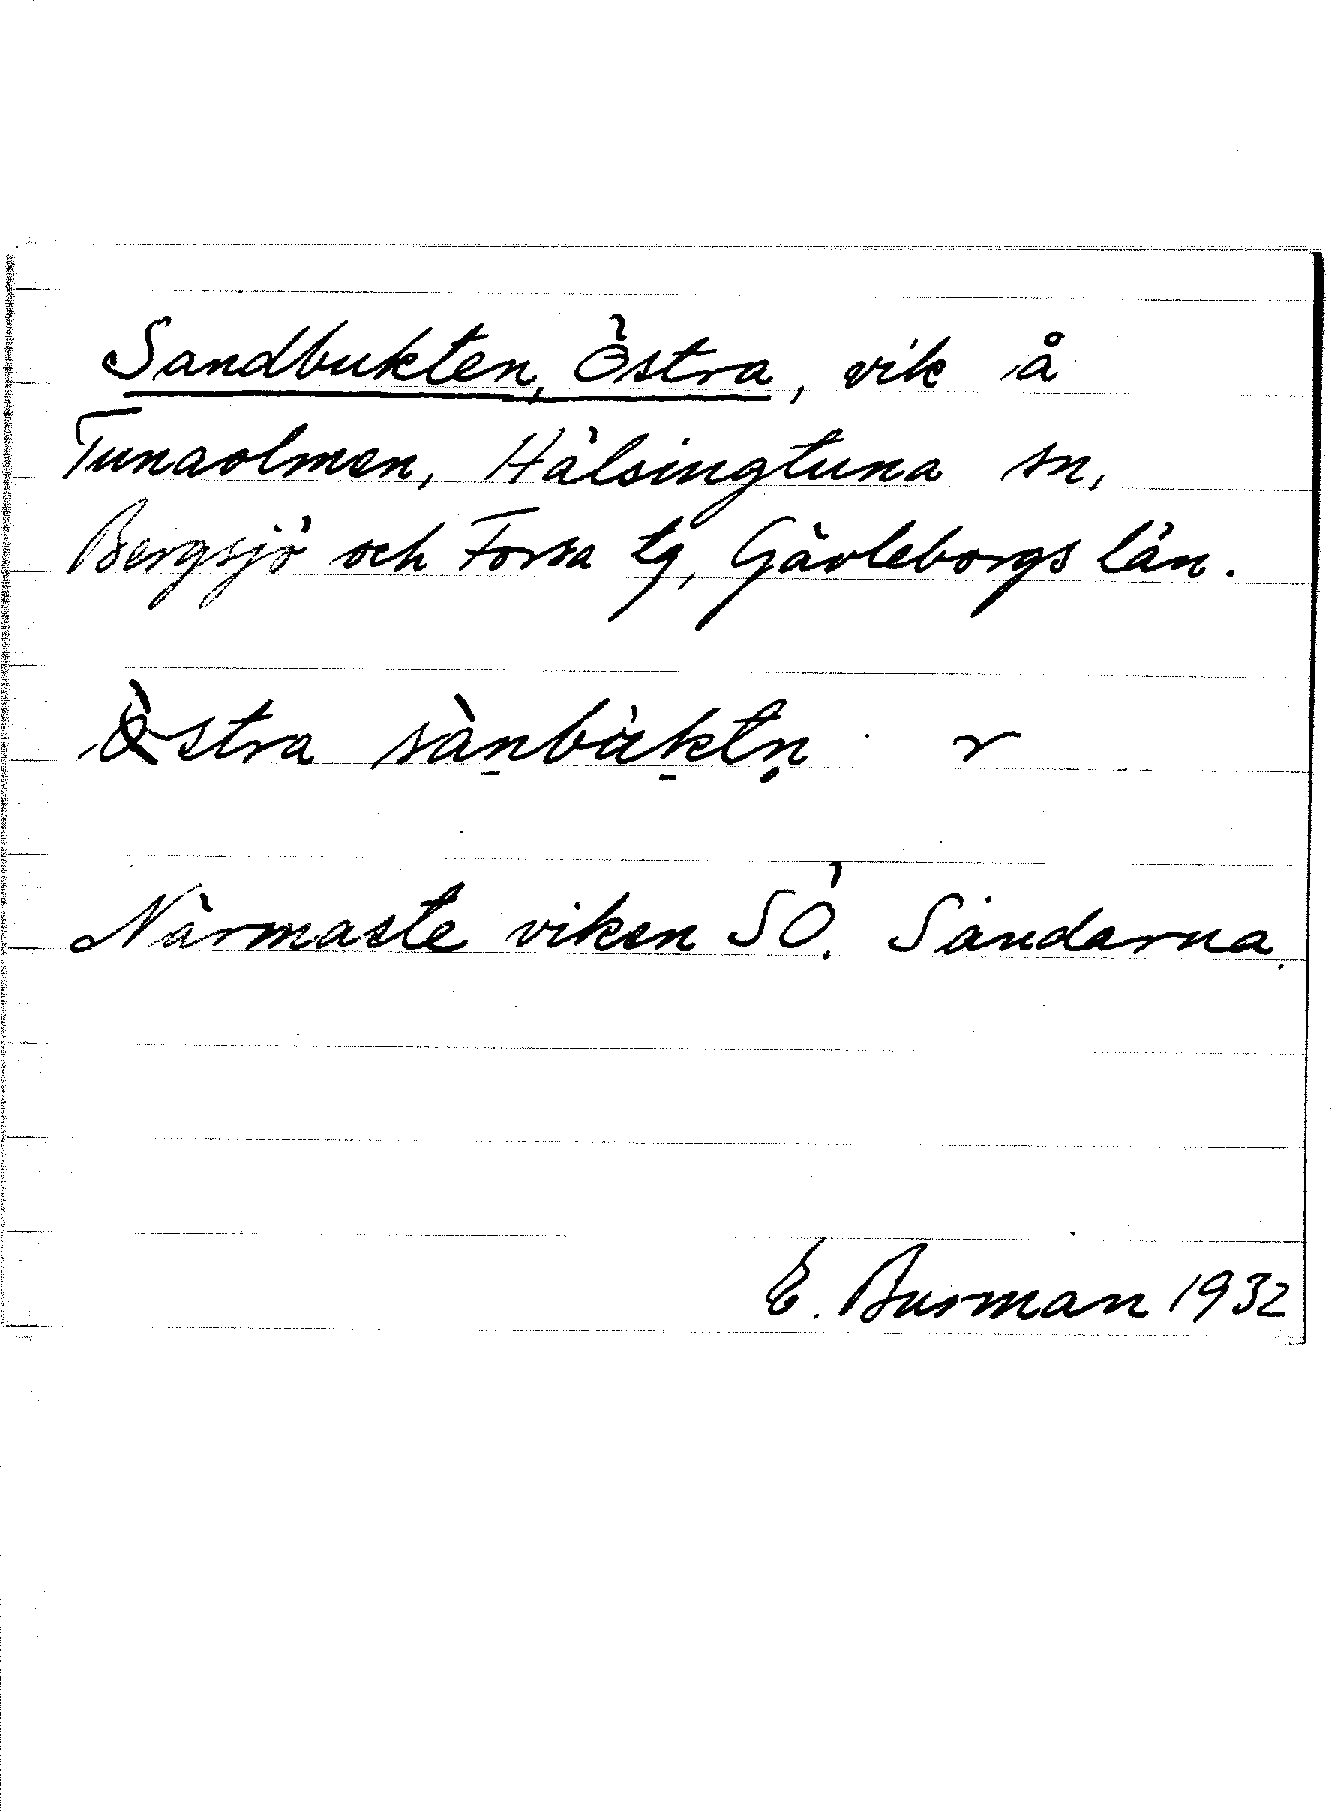 Sandbukten, Östra, vik å
Tunaolmen, Hälsingtuna sn,
Bergsjö och Forsa tg, Gävleborgs län.
Östra sànbùktn r
Närmaste viken SÖ. Sandarna.
E. Burman 1932